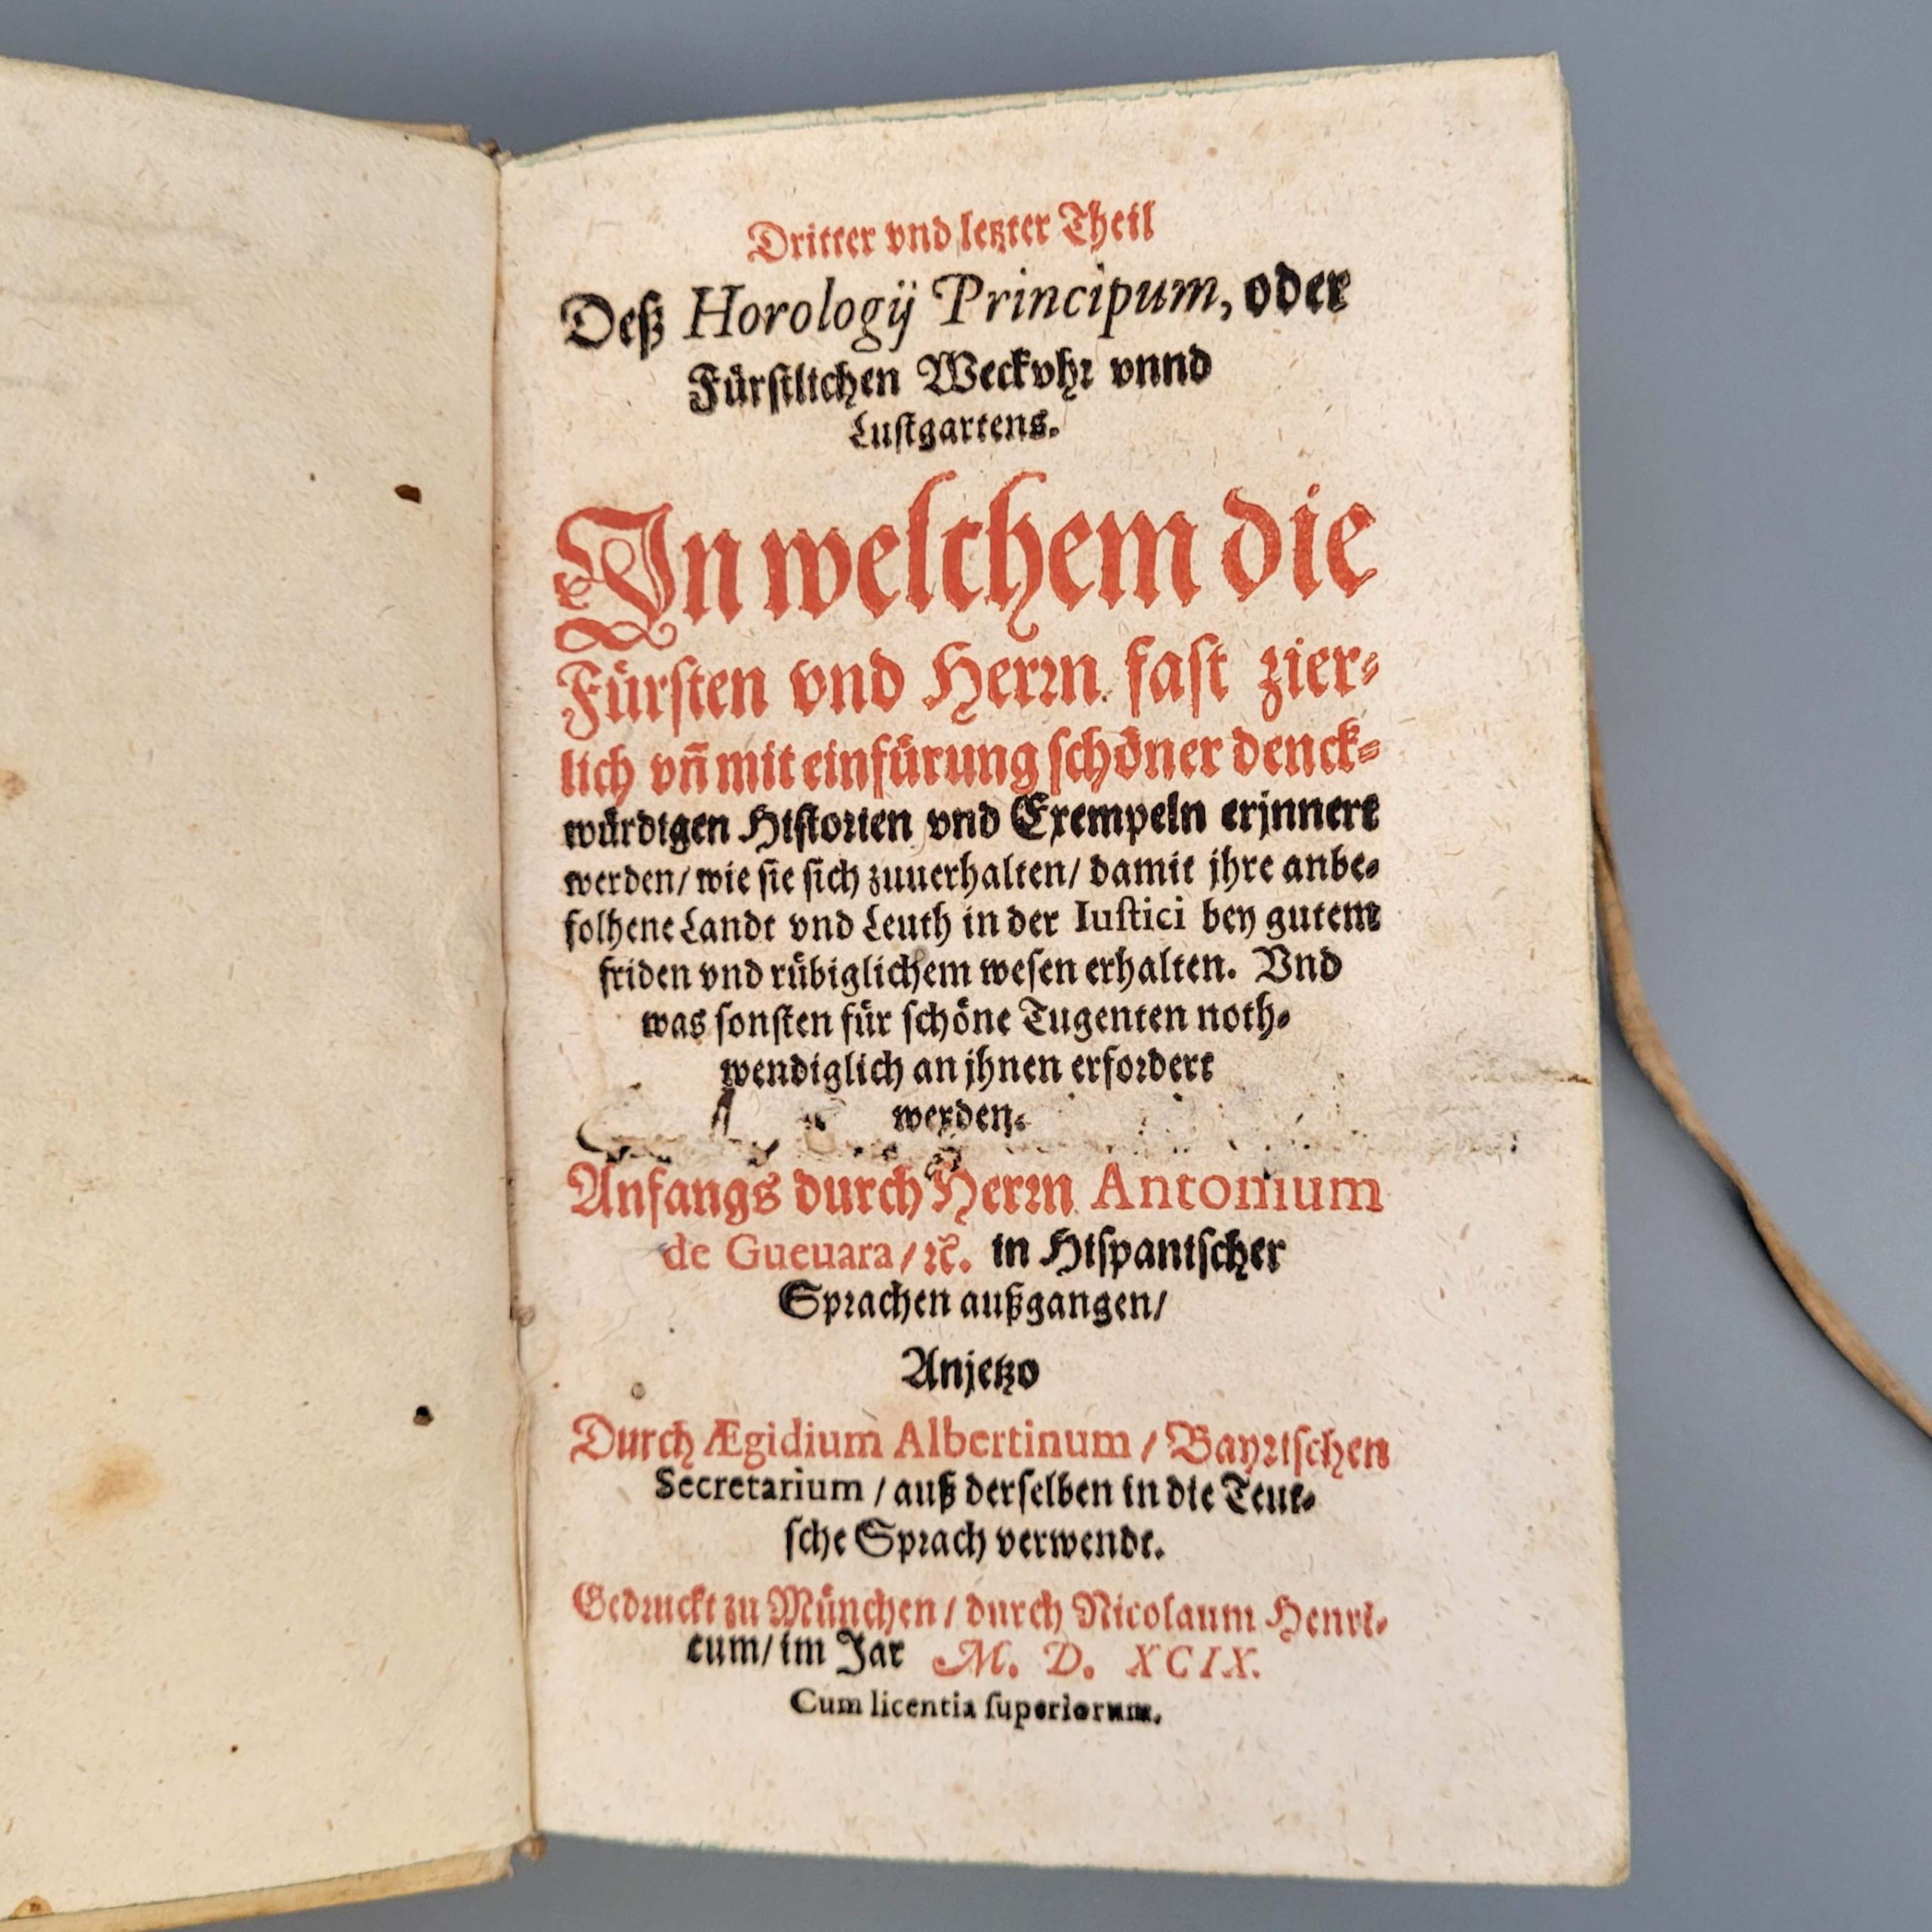 Dritter vnd letzter Theil
Deß Horologij Principum, oder
Fürstlichen Weckvhr vnnd
Lustgartens.
In welchem die
Fürsten vnd Herrn fast zier-
lich vñ mit einfürung schöner denck-
würdigen Historien vnd Exempeln erjnnert
werden/ wie sie sich zuuerhalten/ damit jhre anbe-
folhene Landt vnd Leuth in der Iustici bey gutem
friden vnd rübiglichem wesen erhalten. Vnd
was sonsten für schöne Tugenten noth-
wendiglich an jhnen erfordert
werden.
Anfangs durch Herrn Antonium
de Gueuara/ ꝛc. in Hispanischer
Sprachen außgangen/
Anjetzo
Durch Ægidium Albertinum/ Bayrischen
Secretarium/ auß derselben in die Teut-
sche Sprach verwendt.
Gedruckt zu München/ durch Nicolaum Henri-
cum/ im Jar M. D. XCIX.
Cum licentia superiorum.